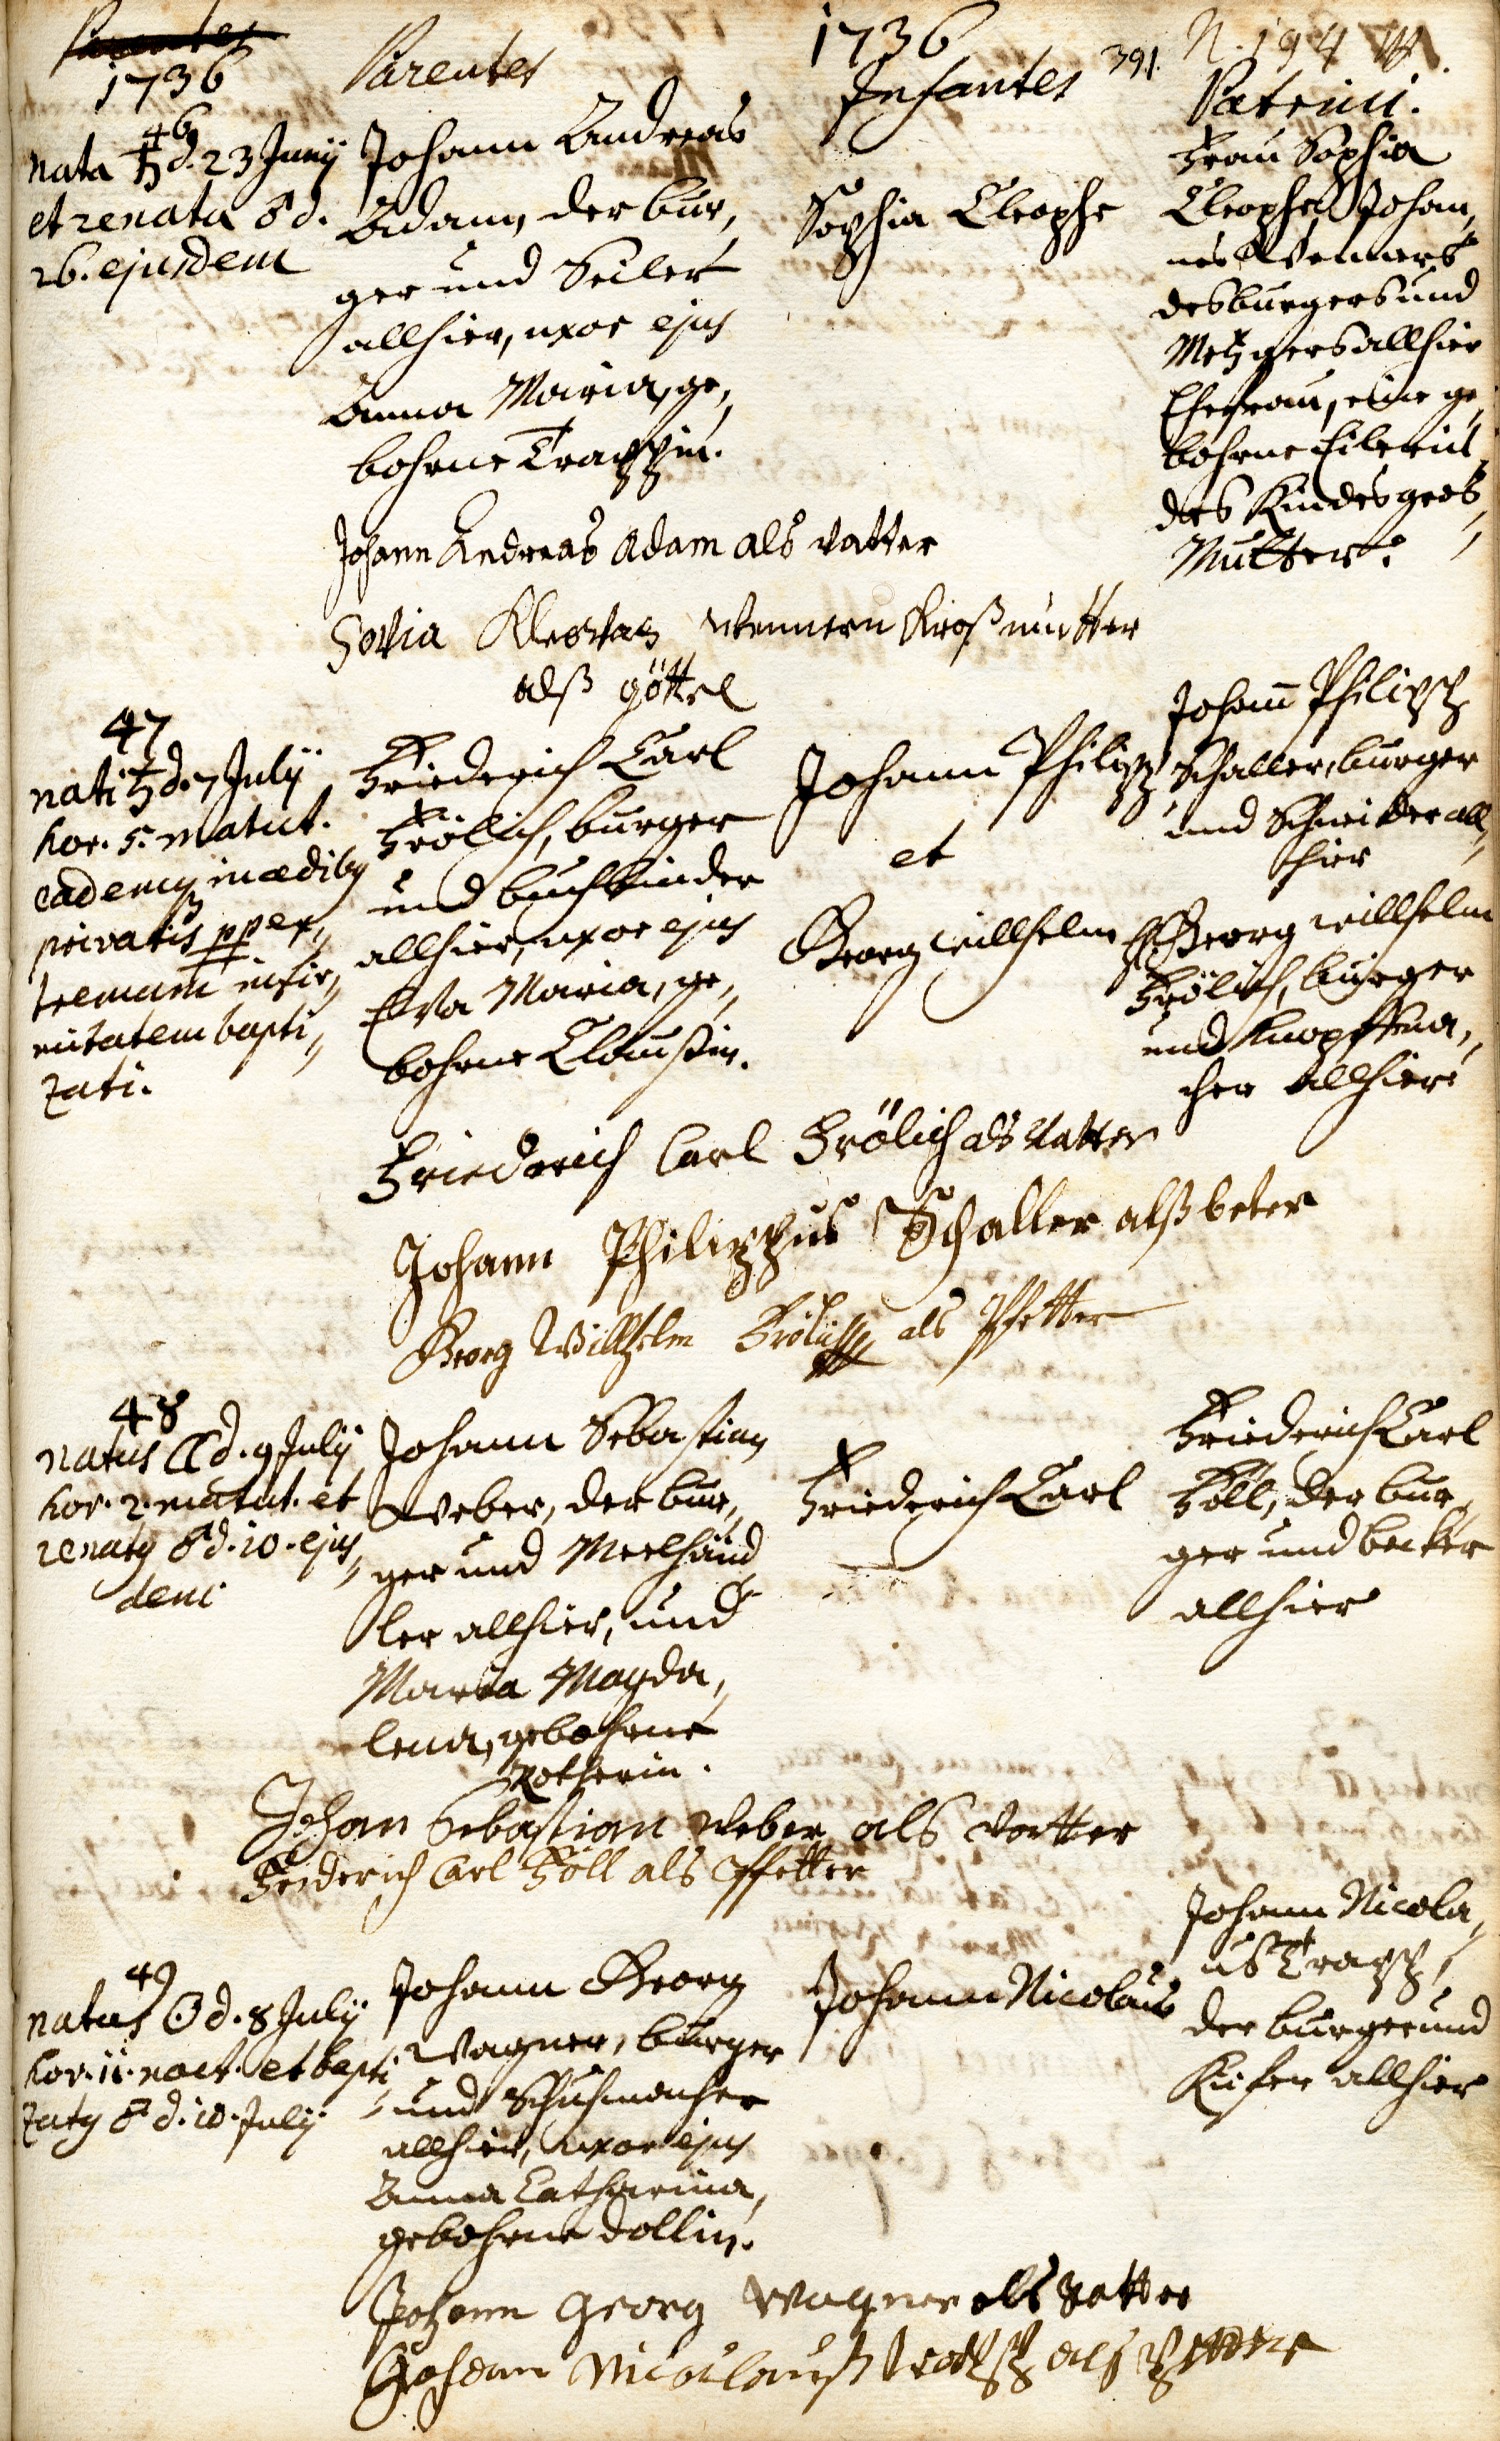 Parentes
1736
Parentes
1736
Infantes
391.
N. 194
Patrini.
46
nata ♄ d. 23 Junij
et renata ♂ d.
26. ejusdem
Johann Andreas
Adam, der bur,
ger und Seiler
allhier, uxor ejus
Anna Maria, ge,
bohrne Trappin.
Sophia Cleophe
Frau Sophia
Cleophe, Johan,
nes Wenners
des burgers und
Metzgers allhier
Ehefrau, eine ge,
bohrne
des Kindes gros,
Mutter.
Johann Andreas Adam als vatter
Sovia Kleovas Wennern Kroß mutter
alß göttel
47
nati ♄ d. 7 July
hor. 5. matut.
eademq in ædiby
privatis pp ex,
tremam infir,
mitatem bapti,
zati.
Friederich Carl
Frölich, burger
und buchbinder
allhier, uxor ejus
Eva Maria, ge,
bohrne Claussin.
Johann Philipp
et
Georg Willhelm
Johann Philipp
Schaller, burger
und Schneider all,
hier
Georg Willhelm
Frölich, burger
und Knopffma,
cher allhier
Friederich Carl Frölich als Vatter
Johann Philippus Schaller alß beter
Georg Willhelm Frölich als Pfetter
48
natus ☾ d. 9 July
hor. 2. matut. et
renaty ♂ d. 10. ejus,
dem
Johann Sebastian
Weber, der bur,
ger und Meelhänd
ler allhier, und
Maria Magda,
lena, gebohrne
Rotherin.
Friederich Carl
Friederich Carl
Föll, der bur,
ger und becker
allhier
Johan Sebastian Weber als vatter
Friderich Carl Föll als Pfetter
49
natus ☉ d. 8 July
hor. 11. noct. et bapti,
zaty ♂ d. 10. July
Johann Georg
Wagner, burger
und Schuhmacher
allhier, uxor ejus
Anna Catharina,
gebohrne Dollin.
Johann Nicolaus
Johann Nicola,
us Trapp,
der burger und
Kiefer allhier
Johann Georg Wagner als Vatter
Johann Nicolauß Trapp als Pfetter